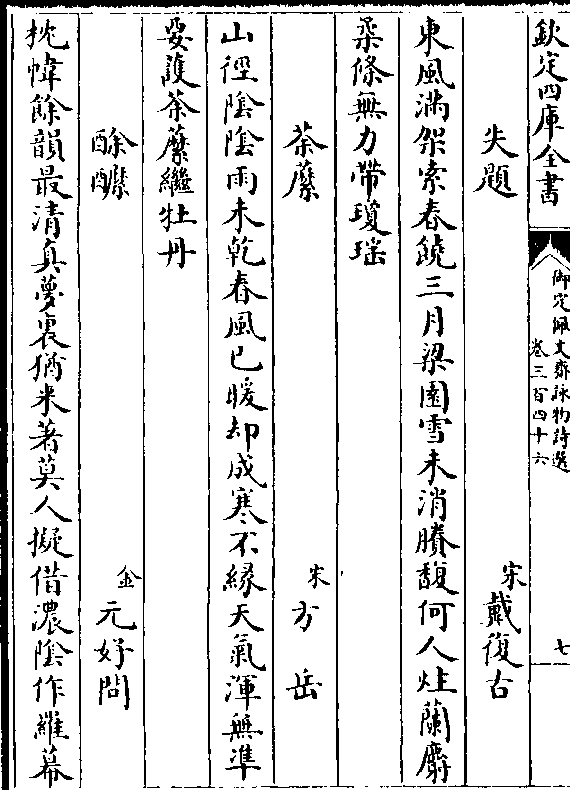 欽定四庫全書
御定佩文齋詠物詩選
卷三百四十六
七
失題
宋戴復古
東風滿架索春饒三月梁園雪未消賸馥何人炷蘭麝
柔條無力帶瓊瑤
荼蘼
宋方岳
山徑陰陰雨未乾春風已暖却成寒不緣天氣渾無凖
要護荼蘼繼牡丹
酴醿
金元好問
枕幃餘韻最清真夢裏猶來著莫人擬借濃陰作羅幕